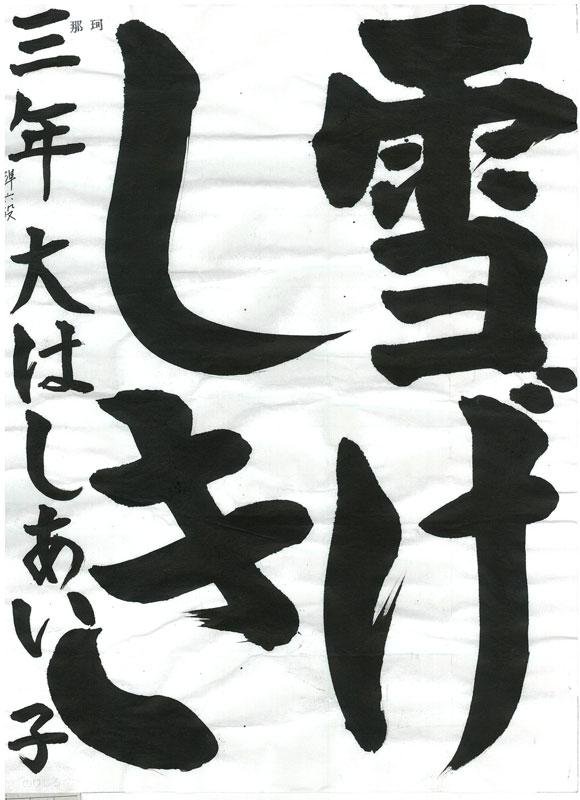 雪げ
しき
三年大はしあい子
準六段
那珂